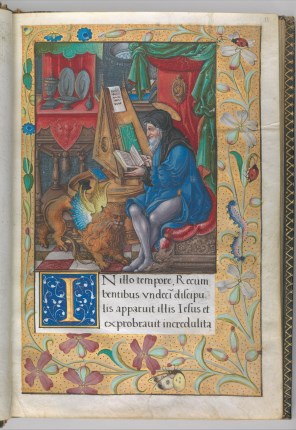 IN illo tempore, Recum
bentibus vndeci discipu
lis apparuit illis Iesus et
exprobrauit incredulita